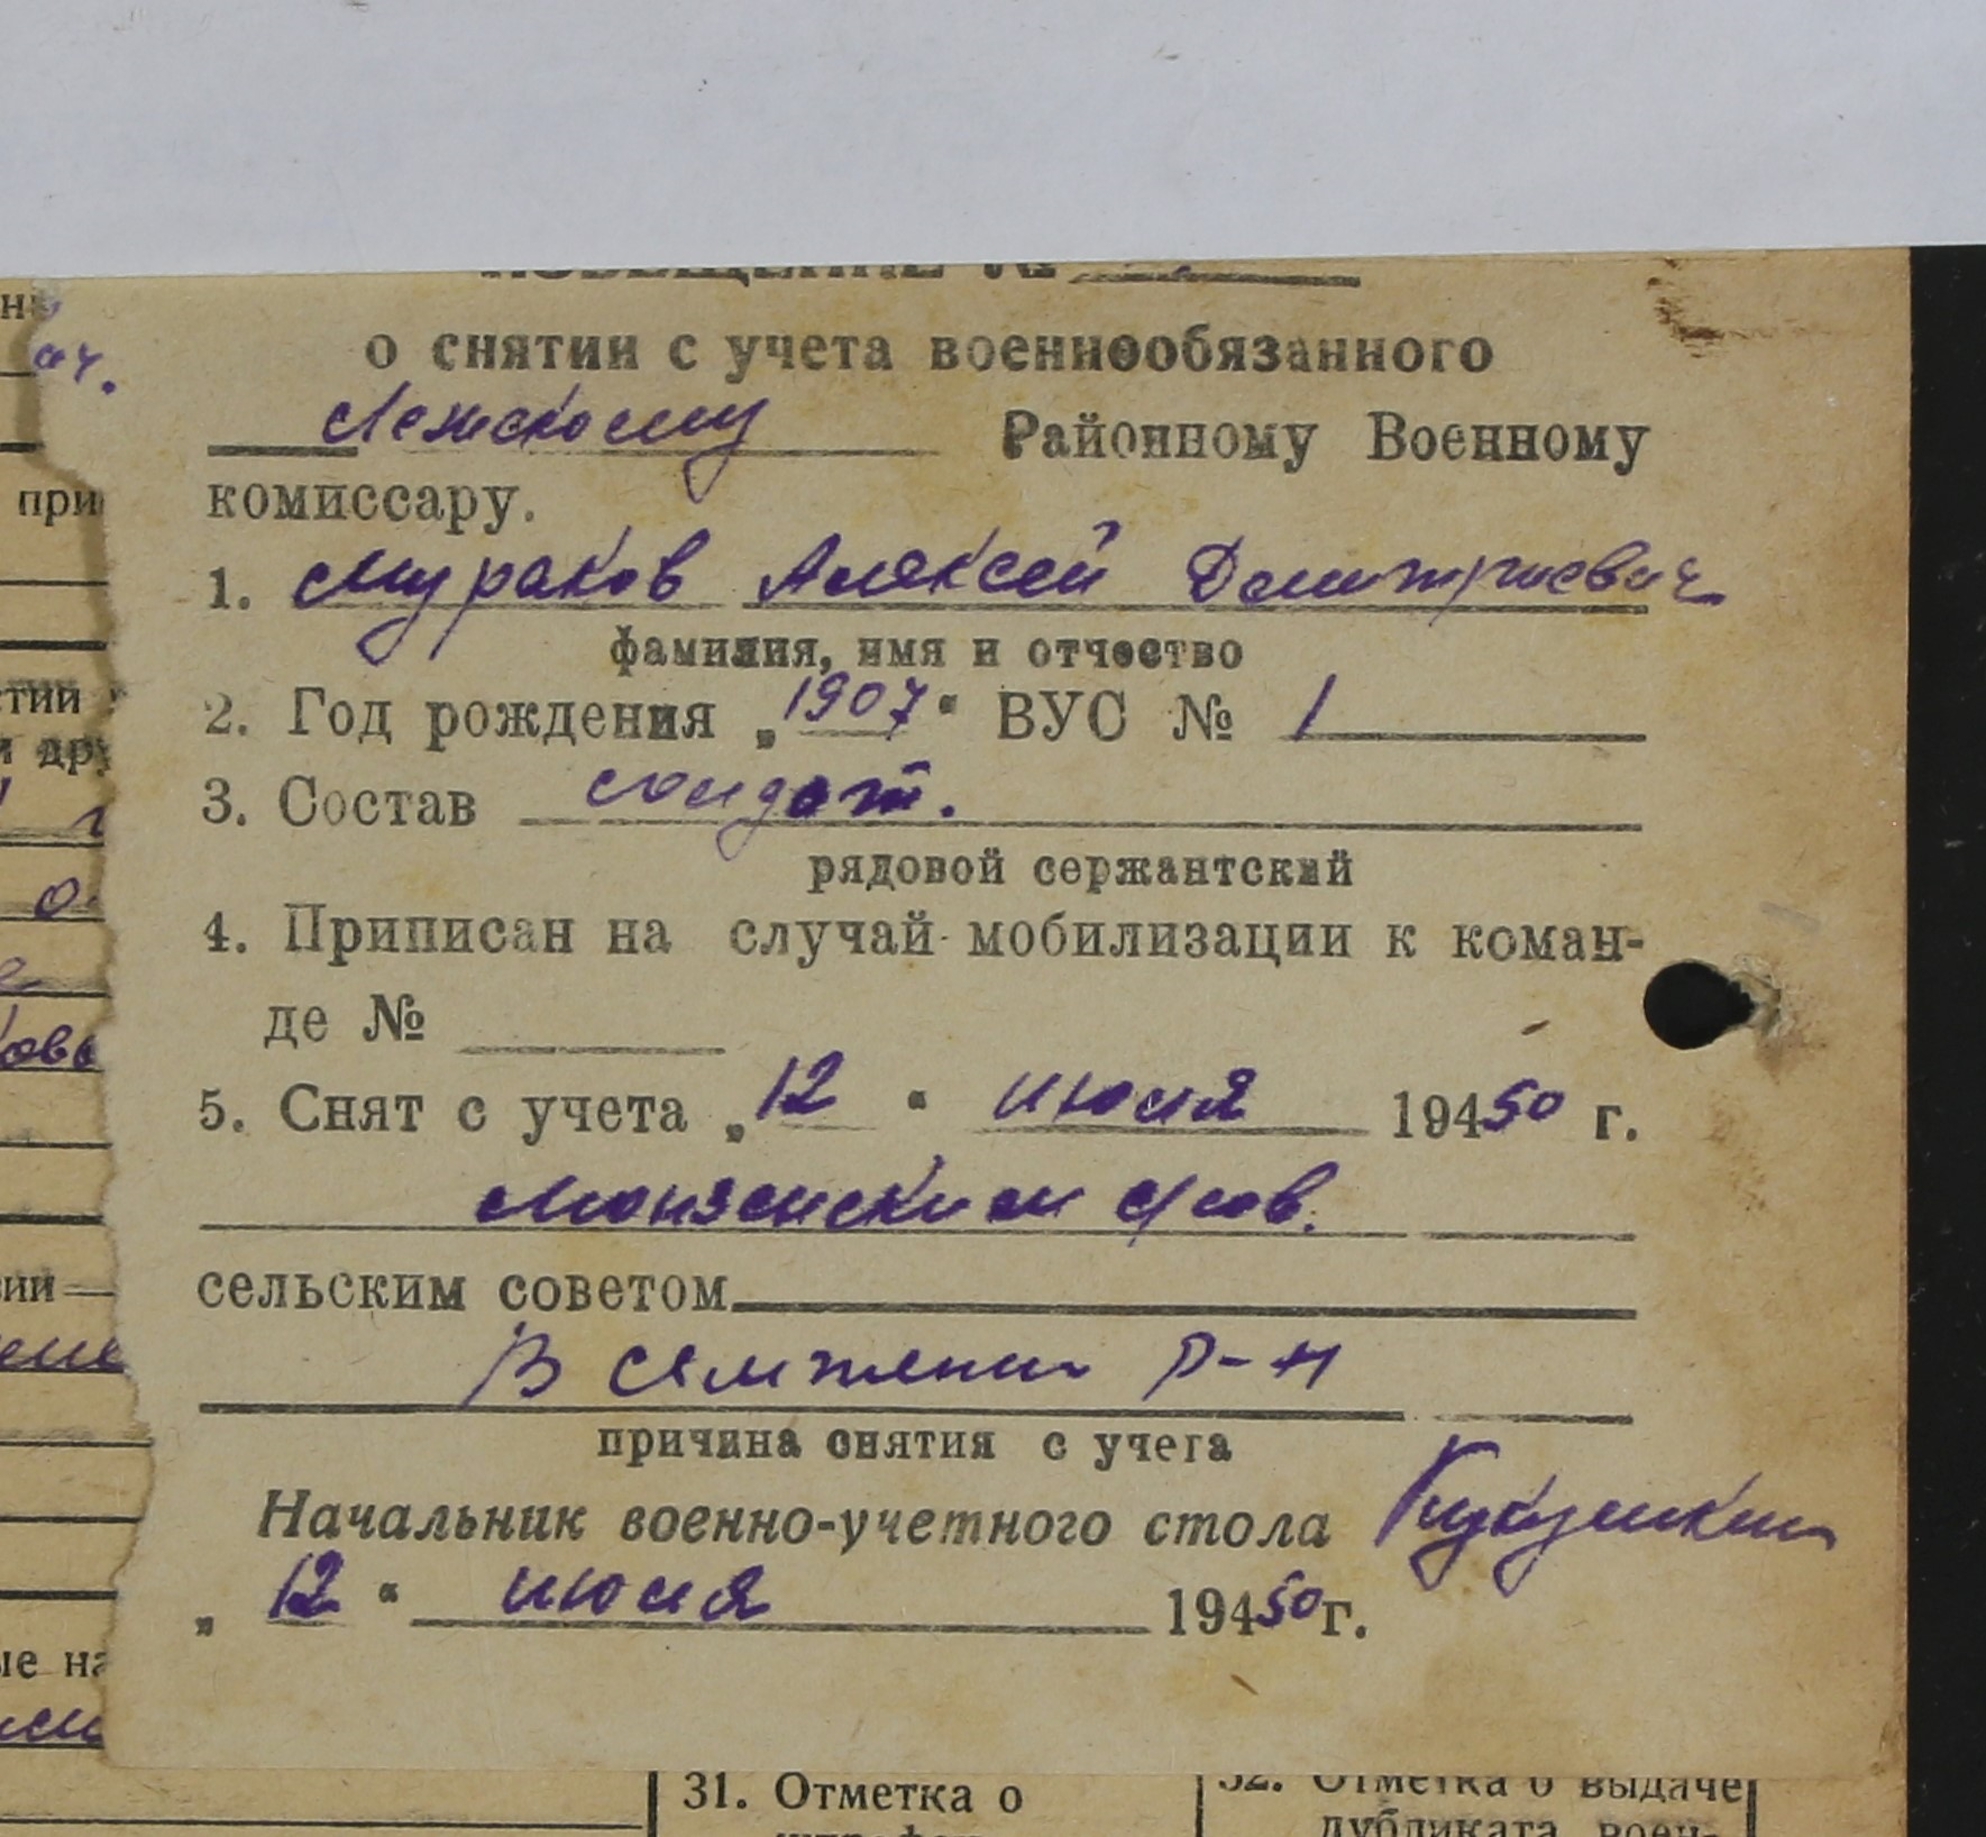 о снятии с учета военнообязанного
Лежскому Районному Военному
комиссару.
1. Мураков Алексей Дмитриевич
фамилия, имя и отчество
2. Год рождения „1907“ ВУС № 1
3. Состав солдат.
рядовой сержантский
4. Приписан на случай мобилизации к коман-
де №
5. Снят с учета „12“ июля 19450 г.
Монзенским с/сов.
сельским советом
В р-н
причина снятия с учета
Начальник военно-учетного стола Кукушкин
„12“ июля 19450 г.
31. Отметка о
32. Отметка о выдаче
дубликата воен-